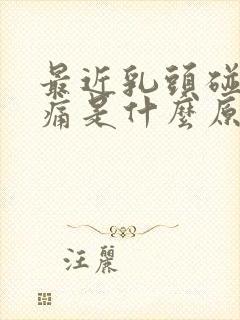 最近乳頭碰
痛是什麼原
汪麗